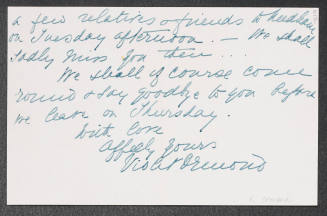 a few relatives & friends to
on Tuesday afternoon. — We shall
sadly miss you then ...
We shall of course come
round & say goodbye to you before
we leave on Thursday.
With love
Affecly yours
Violet Ormond